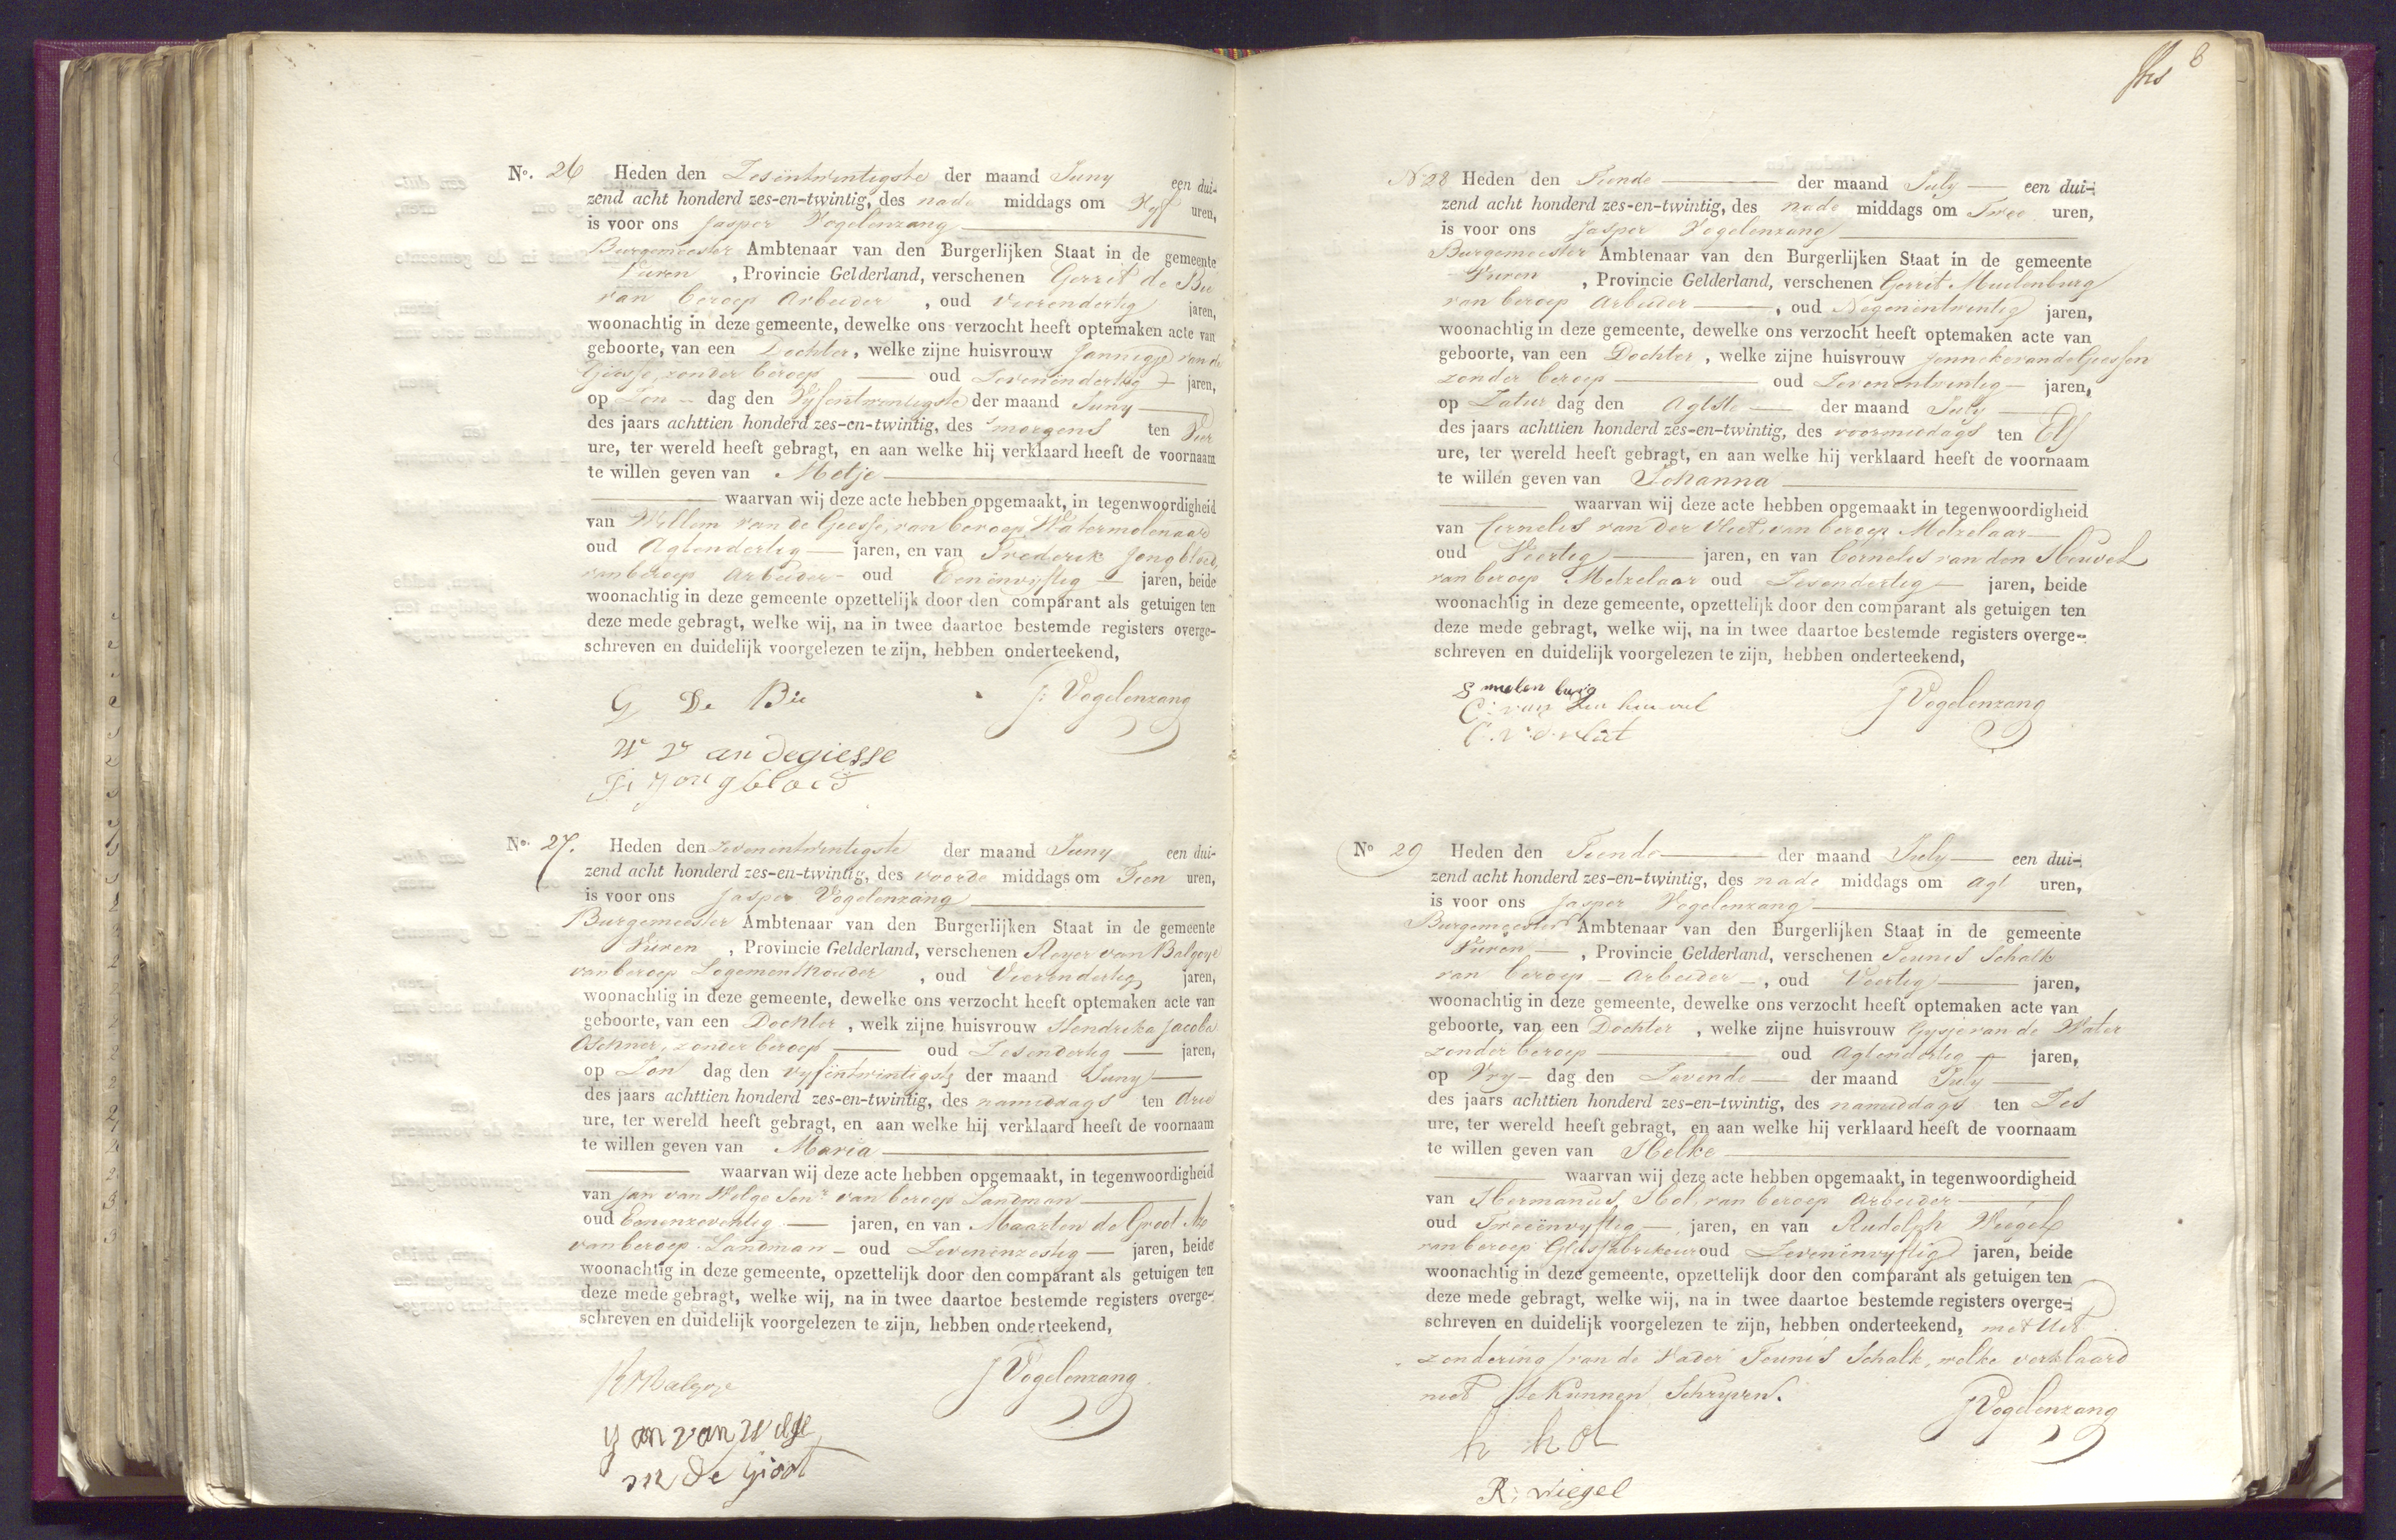 No. 26 Heden den Zesentwintigste der maand Juny een dui-
zend acht honderd zes-en-twintig, des nade middags om Vyf uren,
is voor ons Jasper Vogelenzang
Burgemeester Ambtenaar van den Burgerlijken Staat in de gemeente
Vuren, Provincie Gelderland, verschenen Gerrit de Bie
van beroep Arbeider, oud Vierendertig jaren,
woonachtig in deze gemeente, dewelke ons verzocht heeft optemaken acte van
geboorte, van een Dochter, welke zijne huisvrouw Jannigje van de
Giesse, zonder beroep oud Zevenendertig jaren,
op Zon dag den Vyfentwintigste der maand Juny
des jaars achttien honderd zes-en-twintig, des smorgens ten Vier
ure, ter wereld heeft gebragt, en aan welke hij verklaard heeft de voornaam
te willen geven van Metje
waarvan wij deze acte hebben opgemaakt, in tegenwoordigheid
van Willem van de Giesse, van beroep Watermolenaar
oud Agtendertig jaren, en van Frederik Jongbloed,
van beroep Arbeider oud Eenenvyftig jaren, beide
woonachtig in deze gemeente opzettelijk door den comparant als getuigen ten
deze mede gebragt, welke wij, na in twee daartoe bestemde registers overge-
schreven en duidelijk voorgelezen te zijn, hebben onderteekend,
G De Bie J: Vogelenzang
W V an degiesse
F: Jongbloed
No. 27. Heden den Zevenentwintigste der maand Juny een dui-
zend acht honderd zes-en-twintig, des voorde middags om Tien uren,
is voor ons Jasper Vogelenzang
Burgemeester Ambtenaar van den Burgerlijken Staat in de gemeente
Vuren, Provincie Gelderland, verschenen Royer van Balgoye
van beroep Logementhouder, oud Vierendertig jaren,
woonachtig in deze gemeente, dewelke ons verzocht heeft optemaken acte van
geboorte, van een Dochter, welk zijne huisvrouw Hendrika Jacoba
Oschner, zonder beroep oud Zesendertig jaren,
op Zon dag den vyfentwintigste der maand Juny
des jaars achttien honderd zes-en-twintig, des namiddags ten drie
ure, ter wereld heeft gebragt, en aan welke hij verklaard heeft de voornaam
te willen geven van Maria
waarvan wij deze acte hebben opgemaakt, in tegenwoordigheid
van Jan van Welge Senr. van beroep Landman
oud Eenenzeventig jaren, en van Maarten de Groot
van beroep Landman oud Zevenenzestig jaren, beide
woonachtig in deze gemeente, opzettelijk door den comparant als getuigen ten
deze mede gebragt, welke wij, na in twee daartoe bestemde registers overge-
schreven en duidelijk voorgelezen te zijn, hebben onderteekend,
RvBalgoye J Vogelenzang
Jan van Welge
m de groot
8
No 28 Heden den Tiende der maand July een dui-
zend acht honderd zes-en-twintig, des nade middags om Twee uren,
is voor ons Jasper Vogelenzang
Burgemeester Ambtenaar van den Burgerlijken Staat in de gemeente
Vuren, Provincie Gelderland, verschenen Gerrit Muelenburg
van beroep Arbeider, oud Negenentwintig jaren,
woonachtig in deze gemeente, dewelke ons verzocht heeft optemaken acte van
geboorte, van een Dochter, welke zijne huisvrouw Jenneke van de Giessen
zonder beroep oud Zevenentwintig jaren,
op Zatur dag den Agtste der maand July
des jaars achttien honderd zes-en-twintig, des voormiddags ten Elf
ure, ter wereld heeft gebragt, en aan welke hij verklaard heeft de voornaam
te willen geven van Johanna
waarvan wij deze acte hebben opgemaakt in tegenwoordigheid
van Cornelis van der Vliet, van beroep Metzelaar
oud Veertig jaren, en van Cornelis van den Heuvel
van beroep Metzelaar oud Zesendertig jaren, beide
woonachtig in deze gemeente, opzettelijk door den comparant als getuigen ten
deze mede gebragt, welke wij, na in twee daartoe bestemde registers overge-
schreven en duidelijk voorgelezen te zijn, hebben onderteekend,
g muelen burg J Vogelenzang
C: van den heuvel
C. v. d. vliet
No 29 Heden den Tiende der maand July een dui-
zend acht honderd zes-en-twintig, des nade middags om agt uren,
is voor ons Jasper Vogelenzang
Burgemeester Ambtenaar van den Burgerlijken Staat in de gemeente
Vuren, Provincie Gelderland, verschenen Teunis Schalk
van beroep Arbeider, oud Veertig jaren,
woonachtig in deze gemeente, dewelke ons verzocht heeft optemaken acte van
geboorte, van een Dochter, welke zijne huisvrouw Gysje van de Water
zonder beroep oud Agtendertig jaren,
op Vry dag den Zevende der maand July
des jaars achttien honderd zes-en-twintig, des namiddags ten Zes
ure, ter wereld heeft gebragt, en aan welke hij verklaard heeft de voornaam
te willen geven van Helke
waarvan wij deze acte hebben opgemaakt, in tegenwoordigheid
van Hermanus Hol, van beroep Arbeider
oud Tweeenvyftig jaren, en van Rudolph Wiegel
van beroep Glasfabrikeur oud Zevenenvyftig jaren, beide
woonachtig in deze gemeente, opzettelijk door den comparant als getuigen ten
deze mede gebragt, welke wij, na in twee daartoe bestemde registers overge-
schreven en duidelijk voorgelezen te zijn, hebben onderteekend, met Uit
zondering van de Vader Teunis Schalk, welke verklaard
niet te kunnen Schryven.
h hol J Vogelenzang
R: wiegel